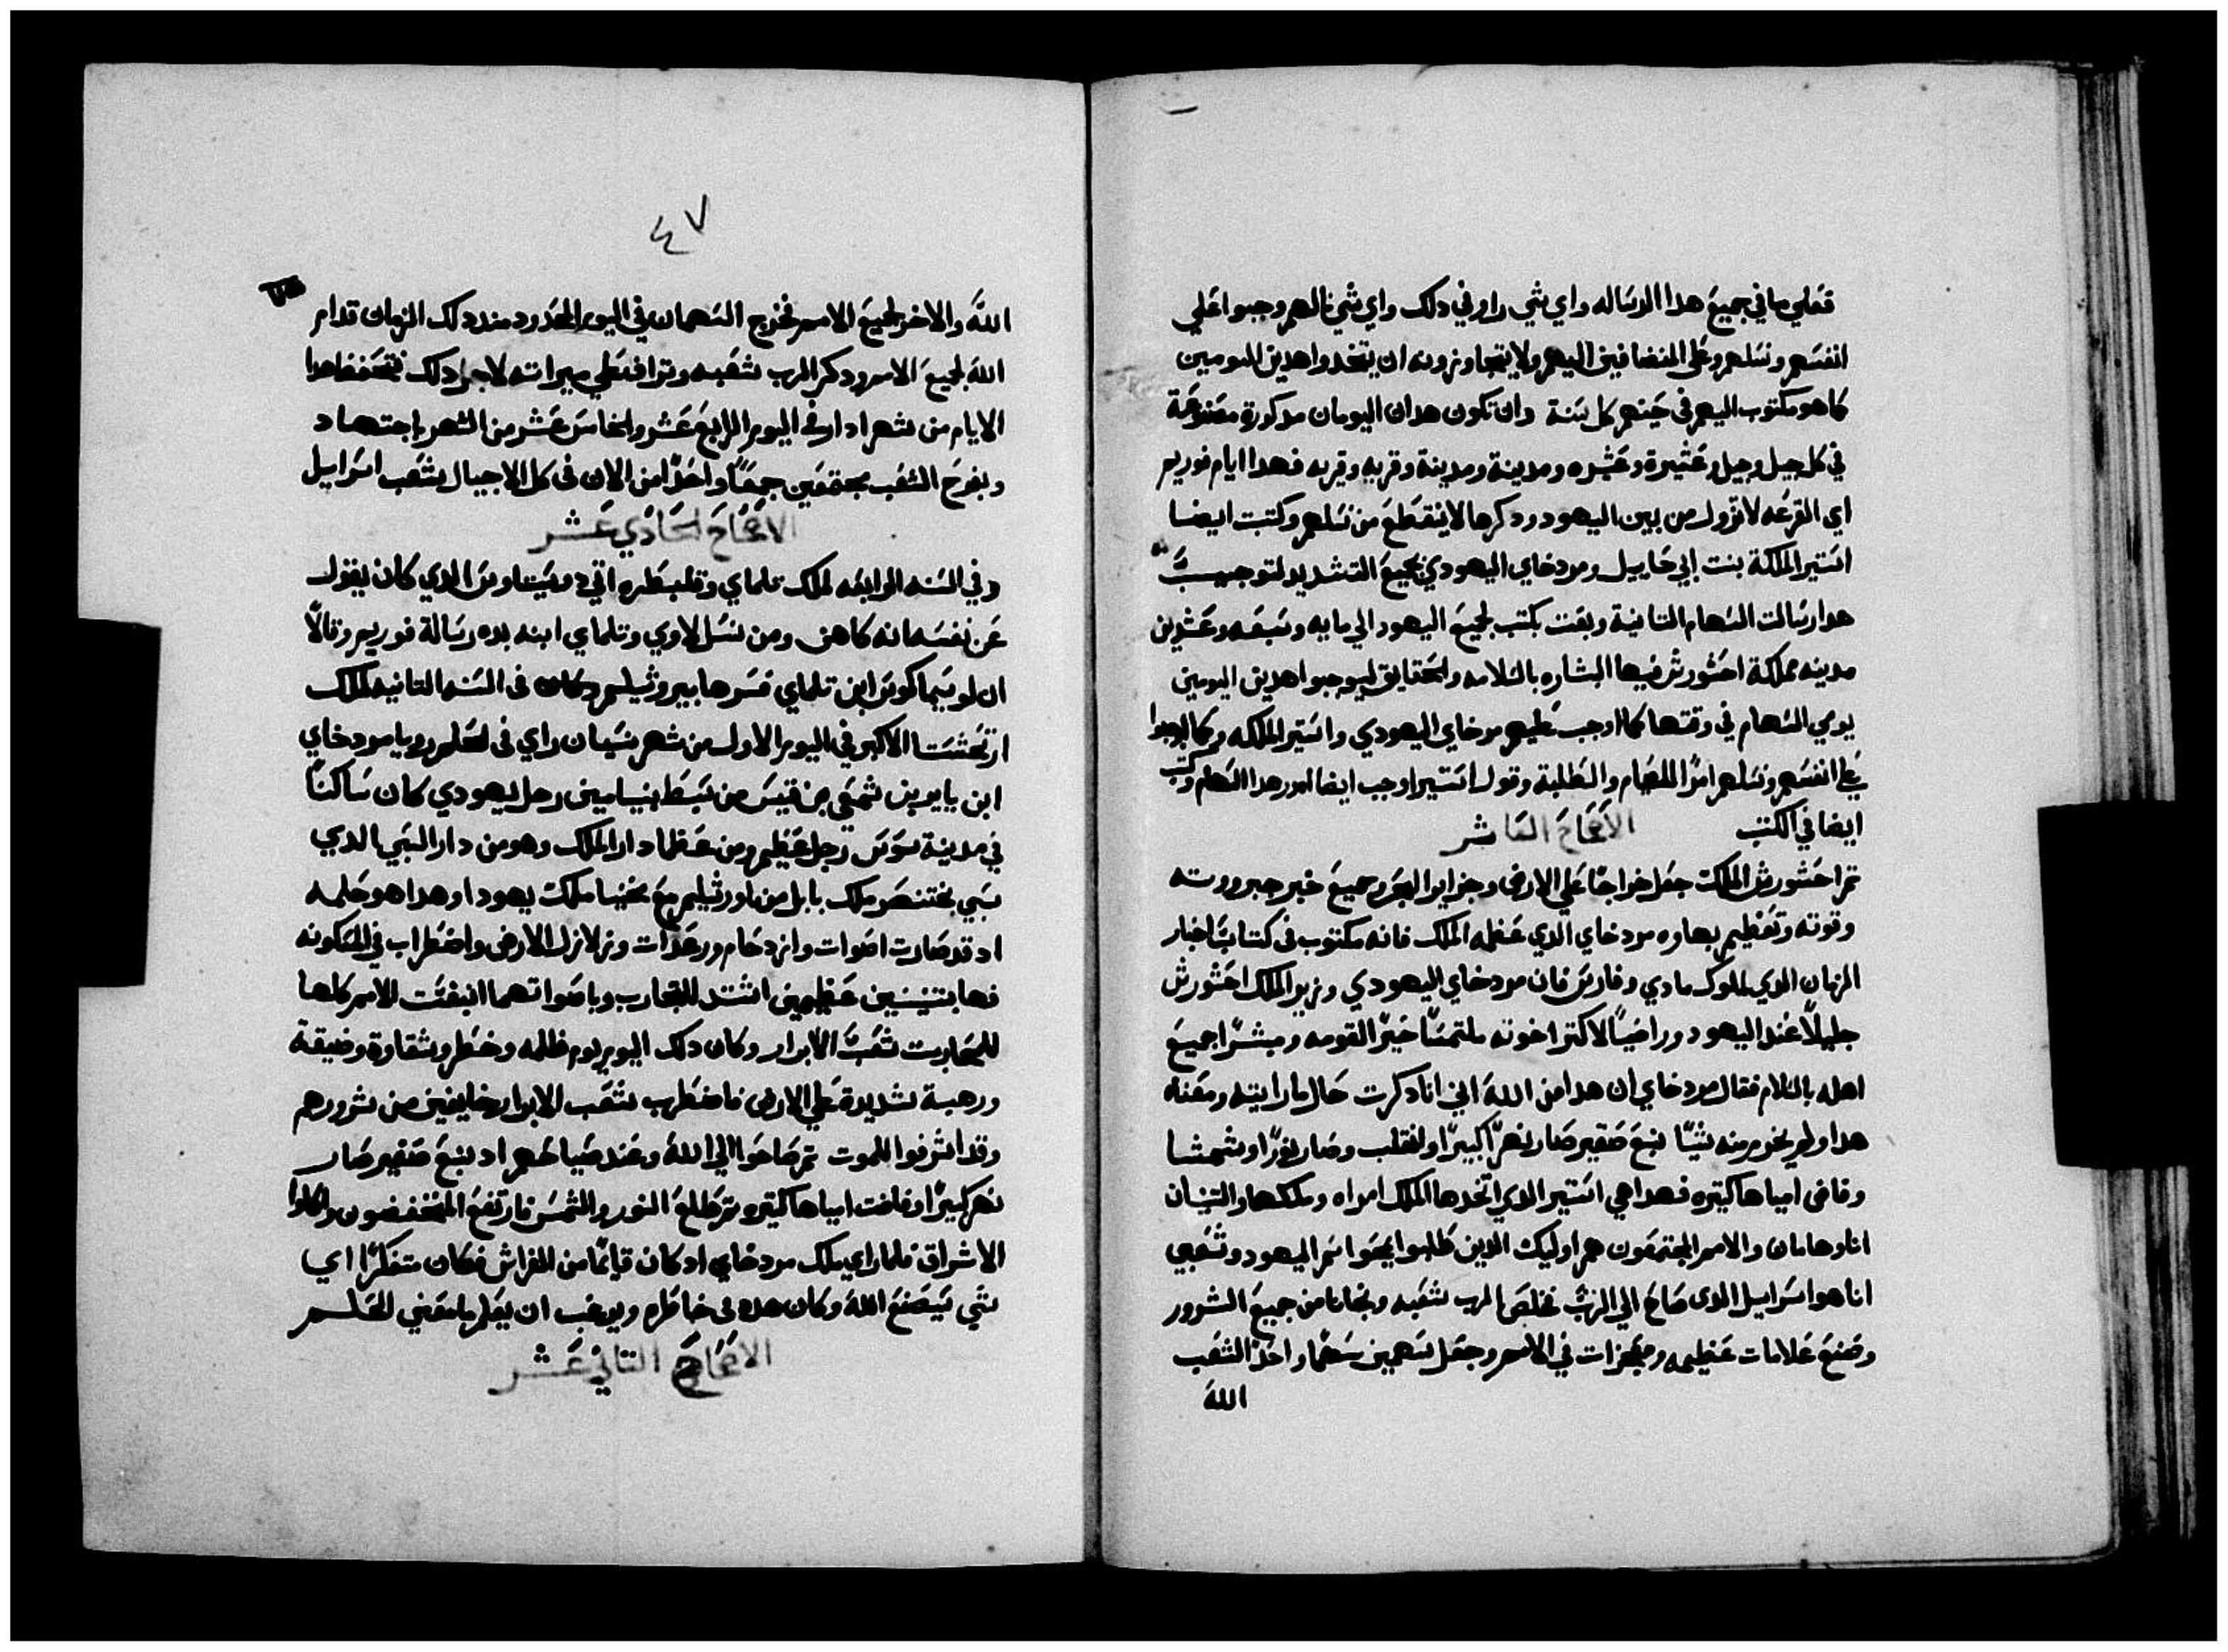 فعلي ما في جميع هدا الرساله واي شي راو في دلك واي شي نالهم وجبوا علي
انفسهم ونسلهم وعلي المنضافين اليهم ولا يتجاوزونه ان يتخدوا هدين اليومين
كما هو مكتوب اليهم في حينهم كل سنة وان تكون هدان اليومان مدكورة مصنوعة
في كل جيل وجيل وعشيرة وعشره ومدينة ومدينة وقريه وقريه فهدا ايام فوريم
اي القرعه لا تزول من بين اليهود ودكرها لا ينقطع من نسلهم وكتبت ايضا
استير الملكة بنت ابي حاييل ومردخاي اليهودي بجميع التشديد لتوجيب
هدا رسالت السهام التانية وبعت بكتب لجميع اليهود الي مايه وسبعه وعشرين
مدينه مملكة احشورش فيها البشاره بالسلامه والحقايق ليوجبوا هدين اليومين
يومي السهام في وقتها كما اوجب عليهم مردخاي اليهودي واستير الملكه وكما اوجبوا
علي انفسهم ونسلهم امر الصيام والطلبة وقول استير اوجب ايضا امر هدا السهام وكتب
ايضا في الكتب الاصحاح العاشر
تم احشورش الملك جعل خراجًا علي الارض وجزاير البحر وجميع خبر جبروته
وقوته وتعظيم بهاوه مردخاي الدي عظمه الملك فانه مكتوب في كتاب اخبار
الزمان الدي لملوك مادي وفارس فان مردخاي اليهودي وزير الملك احشورش
جليلًا عند اليهود وراضيًا لاكتر اخوته ملتمسًا خيرًا لقومه ومبشرًا جميع
اهله بالسلام فقال مردخاي ان هدا من الله اني انا دكرت حال ما رايته ومعنه
هدا ولم يخرم منه شيًا نبع صغير صار نهرًا كبيرًا وانقلب وصار نورًا وشمسًا
وفاض امياها كتيره فهدا هي استير الدي اتخدها الملك امراه وملكها والتنينان
انا وهامان والامم المجتمعون هم اوليك الدين طلبوا يمحوا اسم اليهود وشعبي
انا هوا سراييل الدي صاح الي الرب خلص الرب شعبه ونجانا من جميع الشرور
وصنع علامات عظيمه ومعجزات في الامم وجعل سهمين سهمًا واحدًا لشعب
الله
٤٧
الله والاخر لجميع الامم فخرج السهمان في اليوم المحدود مند دلك الزمان قدام
الله لجميع الامم ودكر الرب شعبه وتراف علي ميراته لاجل دلك فتحفظ هدا
الايام من شهر ادار في اليوم الرابع عشر والخامس عشر من الشهر باجتهاد
وبفرح الشعب مجتمعين جمعًا واحدًا من الان في كل الاجيال لشعب اسراييل
الاصحاح الحادي عشر
وفي السنه الرابعه لملك تلماي وقلبطره اتي دوسيتاوس الدي كان يقول
عن نفسه انه كاهن ومن نسل لاوي وتلماي ابنه بده رسالة فوريم وقالًا
ان لوسيماكوس ابن تلماي فسرها بيروشليم وكان في السنه التانيه لملك
ارتحشستا الاكبر في اليوم الاول من شهر نيسان راي في الحلم رويا مردخاي
ابن يايير بن شمعي بن قيس من سبط بنيامين رجل يهودي كان ساكنًا
في مدينة سوس رجل عظيم ومن عظما دار الملك وهو من دار السبي الدي
سبي بختنصر ملك بابل من اورشليم مع يخنيا ملك يهودا وهدا هو حلمه
اد قد صارت اصوات وازدحام ورعدات وزلازل الارض واضطراب في المسكونه
فها بتنينين عظيمين اشتد للتحارب وباصواتهما انبغتت الامم كلها
للمحاربت شعب الابرار وكان دلك اليوم يوم ظلمه وخطر وشقاوة وضيقة
ورهبة شديدة علي الارض فاضطرب شعب الابرار خايفين من شرورهم
وقد اشرفوا للموت تم صاحوا الي الله وعند صياحهم اد نبع صغير صار
نهر كبيرًا وفاضت امياها كتيره تم طلع النور والشمس فارتفع المنخفضون واكلوا
الاشراف فلما راي ملك مردخاي اد كان قايمًا من الفراش فكان متفكرًا اي
شي سيصنع الله وكان هده في خاطره ويرغب ان يعلم ما معني الحلم
الاصحاح التاني عشر